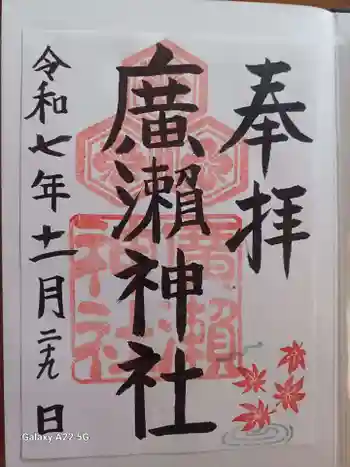 奉拝
廣瀨神社
廣瀨神社
令和七年十一月二十九日
Galaxy A22 5G